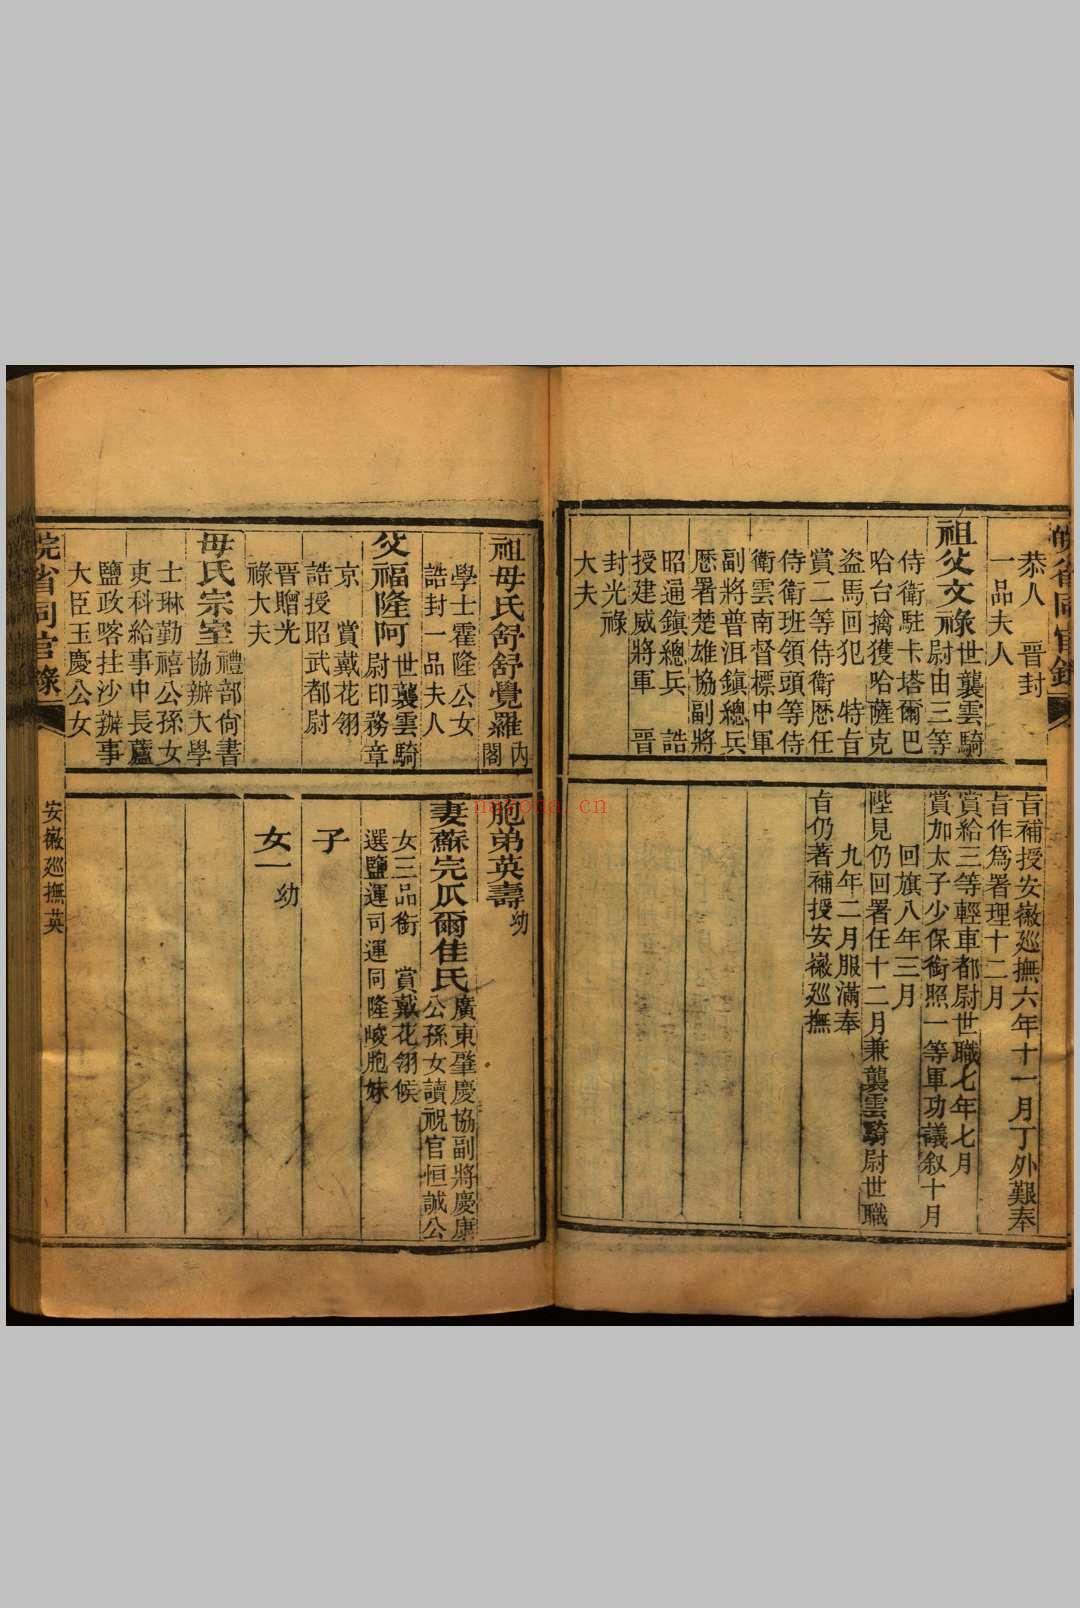 皖省同官錄
恭人 晋封
一品夫人
祖父文祿世襲雲騎
尉由三等
侍衛駐卡塔爾巴
哈台擒獲哈薩克
盜馬回犯 特旨
賞二等侍衛歴任
侍衛班領頭等侍
衛雲南督標中軍
副將普洱鎮總兵
歴署楚雄協副將
昭通鎮總兵 誥
授建威將軍 晋
封光祿
大夫
旨補授安徽廵撫六年十一月丁外艱奉
旨作爲署理十二月
賞給三等輕車都尉世職七年七月
賞加太子少保銜照一等軍功議叙十月
回旗八年三月
陛見仍回署任十二月兼襲雲騎尉世職
九年二月服滿奉
旨仍著補授安徽廵撫
祖母氏舒舒覺羅内
閣
學士霍隆公女
誥封一品夫人
父福隆阿世襲雲騎
尉印務章
京 賞戴花翎
誥授昭武都尉
晋贈光
祿大夫
母氏宗室禮部尙書
協辦大學
士琳勤禧公孫女
吏科給事中長蘆
鹽政喀拄沙辦事
大臣玉慶公女
胞弟英壽幼
妻蘇完瓜爾佳氏廣東肇慶協副將慶康
公孫女讀祝官恒誠公
女三品銜 賞戴花翎候
選鹽運司運同隆峻胞妹
子
女一幼
皖省同官錄
安徽廵撫英
naroua.cn